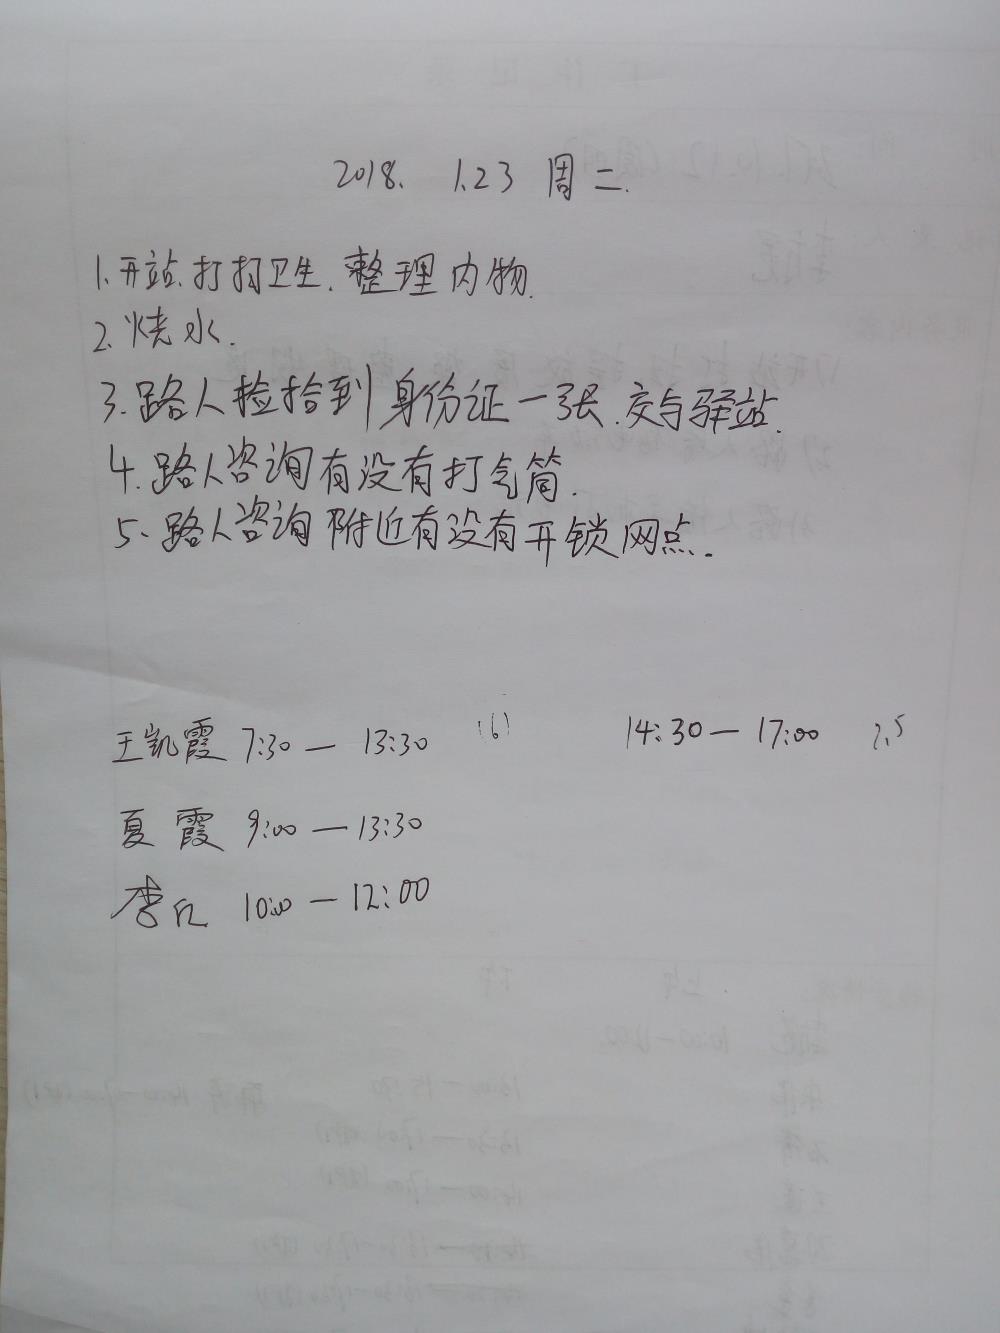 2018. 1.23 周二.
1.开站.打扫卫生.整理内物.
2.烧水.
3.路人捡拾到身份证一张.交与驿站.
4.路人咨询有没有打气筒.
5.路人咨询附近有没有开锁网点.
王凯霞 7:30 — 13:30 (6) 14:30 — 17:00 2.5
夏霞 9:00 — 13:30
李 10:00 — 12:00